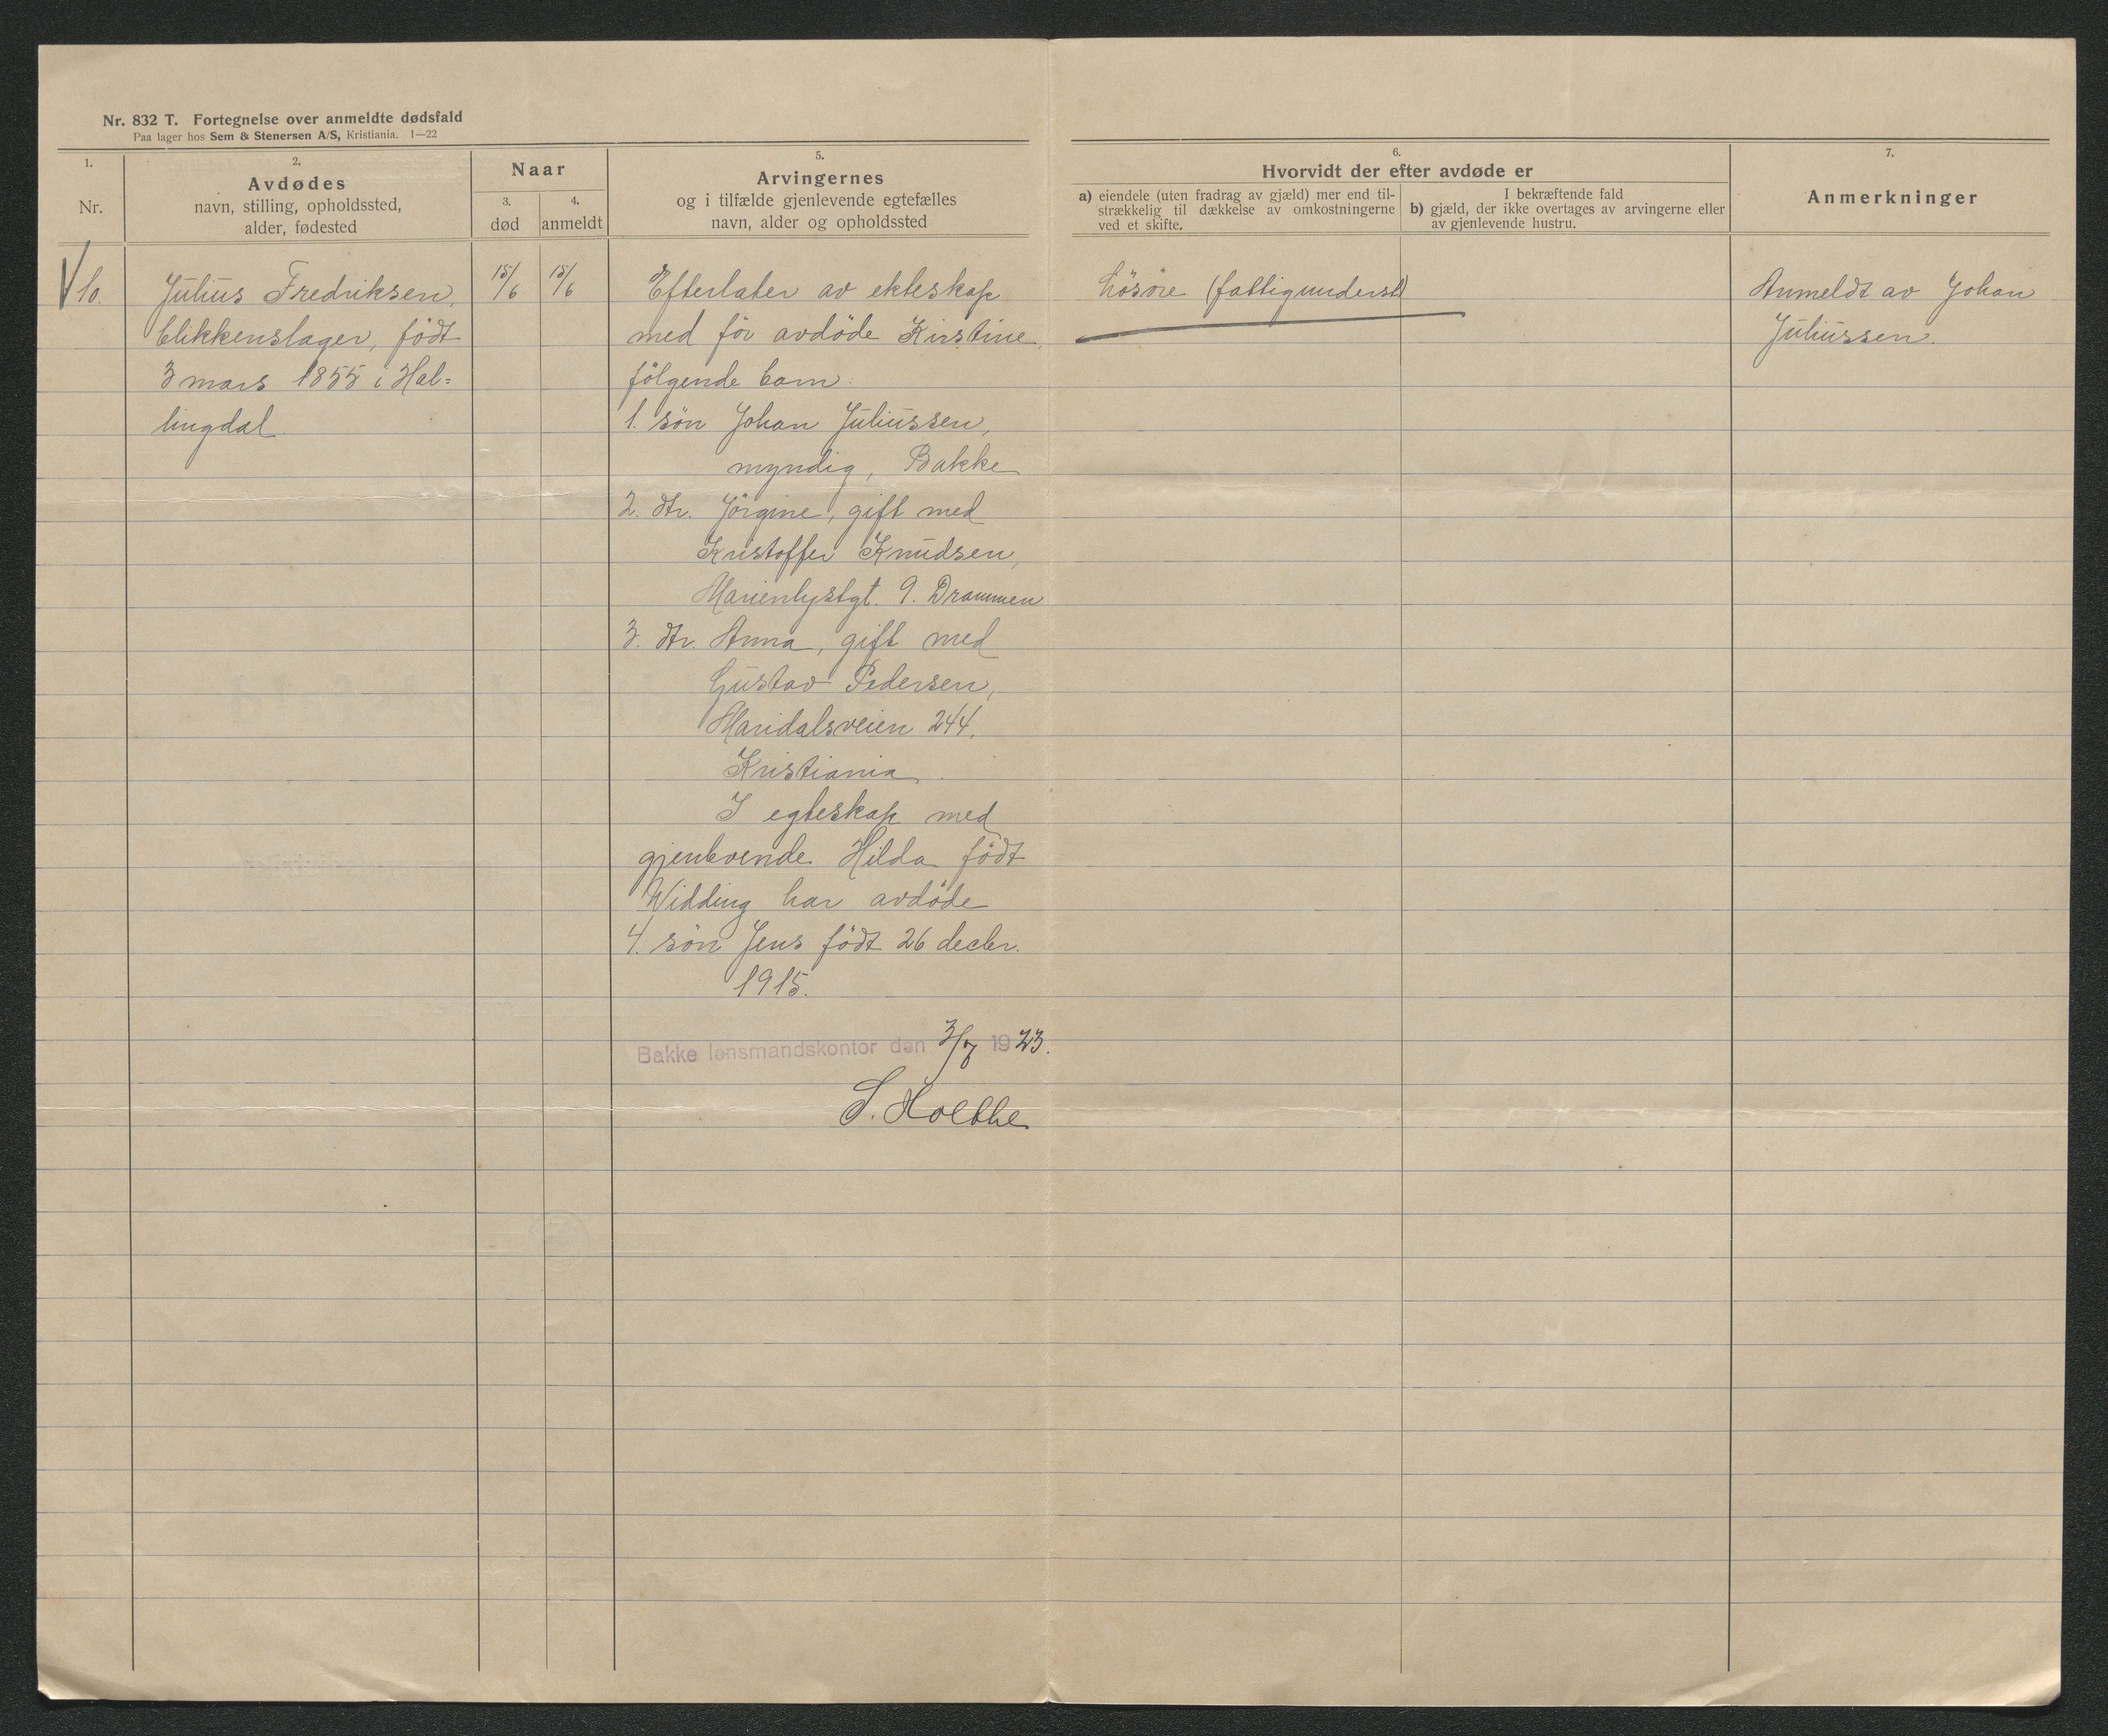 Nr. 832 T. Fortegnelse over anmeldte dødsfald
Paa lager hos Sem & Stenersen A/S, Kristiania. 1—22
1.
Nr.
2.
Avdødes
navn, stilling, opholdssted,
alder, fødested
Naar
3.
død
4.
anmeldt
5.
Arvingernes
og i tilfælde gjenlevende egtefælles
navn, alder og opholdssted
6.
Hvorvidt der efter avdøde er
a) eiendele (uten fradrag av gjæld) mer end til-
strækkelig til dækkelse av omkostningerne
ved et skifte.
I bekræftende fald
b) gjæld, der ikke overtages av arvingerne eller
av gjenlevende hustru.
7.
Anmerkninger
10.
Julius Fredriksen,
blikkenslager, födt
3 mars 1855 i Hal=
lingdal.
15/6
15/6
Efterlater av ekteskap
medför avdöde Kirstine,
fölgende barn:
1. sön Johan Juliussen,
myndig, Bakke
2. dtr. Jörgine, gift med
Kristoffer Knudsen,
Marienlystgt. 9. Drammen
3. dtr. Anna, gift med
Gustav Pedersen,
Maridalsveien 244,
Kristiania.
I egteskap med
gjenlevende Hilda födt
Widding har avdöde
4. sön Jens födt 26 decbr.
1915.
Bakke lensmandskontor den 3/7 1923.
S. Holthe
Lösöre (fattigunderst)
Anmeldt av Johan
Juliussen.